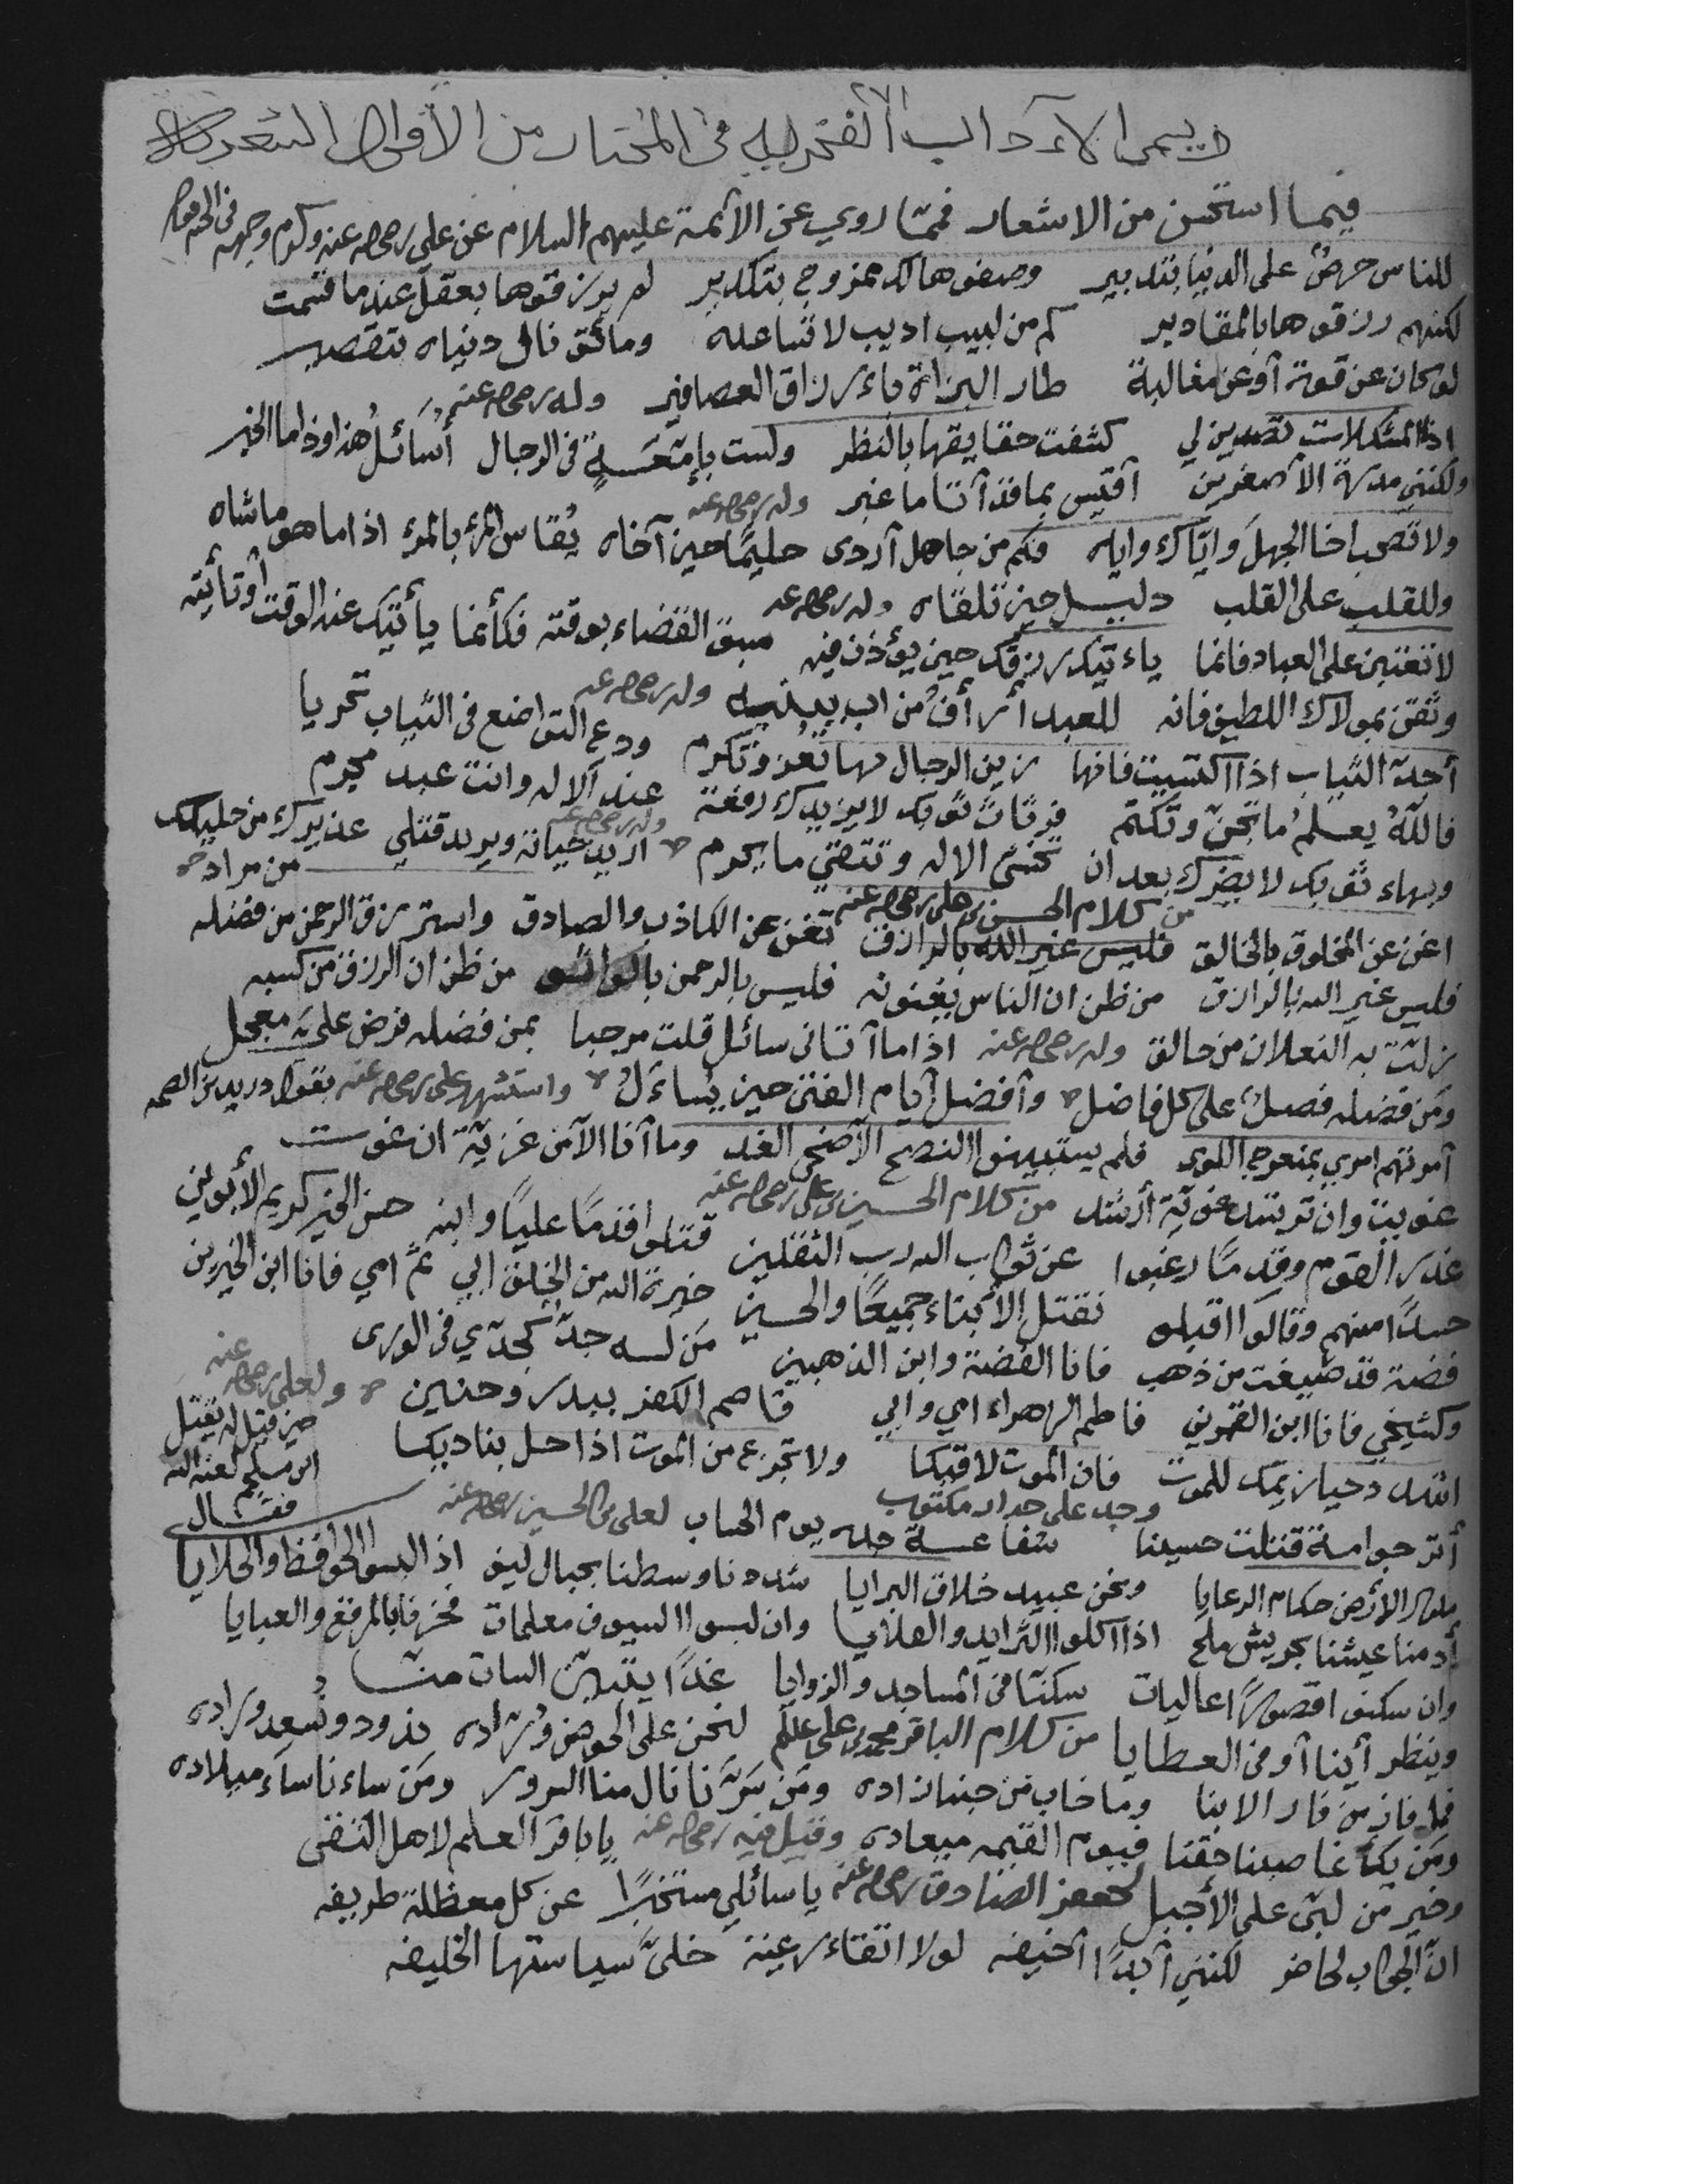 ويسمى الآداب الفخريه في المختار من الأقوال الشعريه
فيما استحسن من الاشعار فممّا روي عن الآئمة عليهم السلام عن علي رضي الله عنه وكرم وجهه في
للناس حرصٌ على الدنيا بتدبير وصفوها لك ممزوج بتكدير لم يرزقوها بعقل عند ما قسمت
لكنهم رزقوها بالمقادير كم من لبيب اديب لا تساعده ومائق نال دنياه بتقصير
لو كان عن قوة أو عن مغالبة طار البزاة باءرزاق العصافير وله رضي الله عنه
اذا المشكلات تصدين لي كشفت حقايقها بالنظر ولست بإمّعسةٍ في الرجال أسائل هذا وذا ما الخبر
ولكنني مدرة الأصغرين أقيس بما قد أتا ما غبر وله رضي الله عنه
ولا تصحب اخا الجهل وايّاك واياه فكم من جاهل أردى حليمًا حين آخاه يُقاس المرء بالمرء اذا ما هو ماشاه
وللقلب على القلب دليل حين تلقاه وله رضي الله عنه
لا تعتبن على العباد فانما ياءتيك رزقك حين يؤذن فيه سبق القضاء بوقته فكأنما يأتيك عند الوقت أو تأتيه
وثقن بمولاك اللطيف فانه للعبد أرأف من اب ببنيه وله رضي الله عنه
أجد الثياب اذا اكتسيت فانها زين الرجال بها تُعز وتكرم ودع التواضع في الثياب تحريا
فالله يعلم ما تجن وتكتم فرثاث ثوبك لا يزيدك رفعة عند الاله وانت عبد مجرم
وبهاء ثوبك لا يضرك بعد ان تخشى الاله وتتقي ما يحرم وله رضي الله عنه اريد حياته ويريد قتلي عذيرك من خليلك من مراد
من كلام الحسن بن علي رضي الله عنه
اغن عن المخلوق بالخالق تغن عن الكاذب والصادق واسترزق الرحمن من فضله
فليس غير الله بالرازق من ظن ان الناس يغنونه فليس بالرحمن بالواثق من ظن ان الرزق من كسبه
زلت به النعلان من حالق وله رضي الله عنه اذا ما أتاني سائل قلت مرحبا بمن فضله فرض عليّ معجل
ومن فضله فضل على كل فاضل وأفضل أيام الفتى حين يُساءَل واستشهد علي رضي الله عنه بقول دريد بن الصمه
أمرتهم امري بمنعرج اللوى فلم يستبينوا النصح الا ضحى الغد وما أنا الا من غزيّة ان غوت
غويت وان ترشد غزيّة أرشد من كلام الحسين بن علي رضي الله عنه
غدر القوم وقدمًا رغبوا عن ثواب الله رب الثقلين قتلوا قدمًا عليًا وابنه حسن الخير كريم الأبوين
حسدًا منهم وقالوا اقبلو نقتل الأبناء جميعًا والحسين خيرة الله من الخلق ابي ثم امي فانا ابن الخيرين
فضة قد صيغت من ذهب فانا الفضة وابن الذهبين مَن له جدّ كجدّي في الورى
وكشيخي فانا ابن القمرين فاطم الزهراء امي وابي قاصم الكفر ببدر وحنين ولعلي رضي الله عنه
حين قيل له يقتل ابن ملجم لعنه الله فقال
اشدد حيازيمك للموت فان الموت لاقيكا ولا تجزع من الموت اذا حل بناديكا
وجد على جدار مكتوب
أترجوا امة قتلت حسينا شفاعة جده يوم الحساب لعلي بن الحسين رضي الله عنه
ملوك الأرض حكام الرعايا ونحن عبيد خلاق البرايا شددنا وسطنا بحبال ليف اذا لبسوا الحوافظ والحلايا
أدمنا عيشنا بجريش ملح اذا اكلوا الثرايد والقلايا وان لبسوا السيوف معلمات فخرنا بالمرقع والعبايا
وان سكنوا قصورًا عاليات سكنّا في المساجد والزوايا غدًا يتبين السادات منا
وينظر أينا أوفى العطايا من كلام الباقر محمد بن علي عليهم لنحن على الحوض وُرّاده نذود ونُسعد ورّاده
فما فاز من فاز الا بنا وما خاب من حبنا زاده ومن سَرّنا نال منا السرور ومَن ساءنا ساءَ ميلاده
ومَن يكُ غاصبنا حقنا فيوم القيمه ميعاده وقيل فيه رضي الله عنه يا باقر العلم لاهل التقى
وخير من لبّى على الأجبل لجعفر الصادق رضي الله عنه يا سائلي مستخبرًا عن كل معظلة طريفه
انّ الجواب لحاضر لكنني أبدًا أخيفه لولا اتقاء رعية خلّى سياستها الخليفه